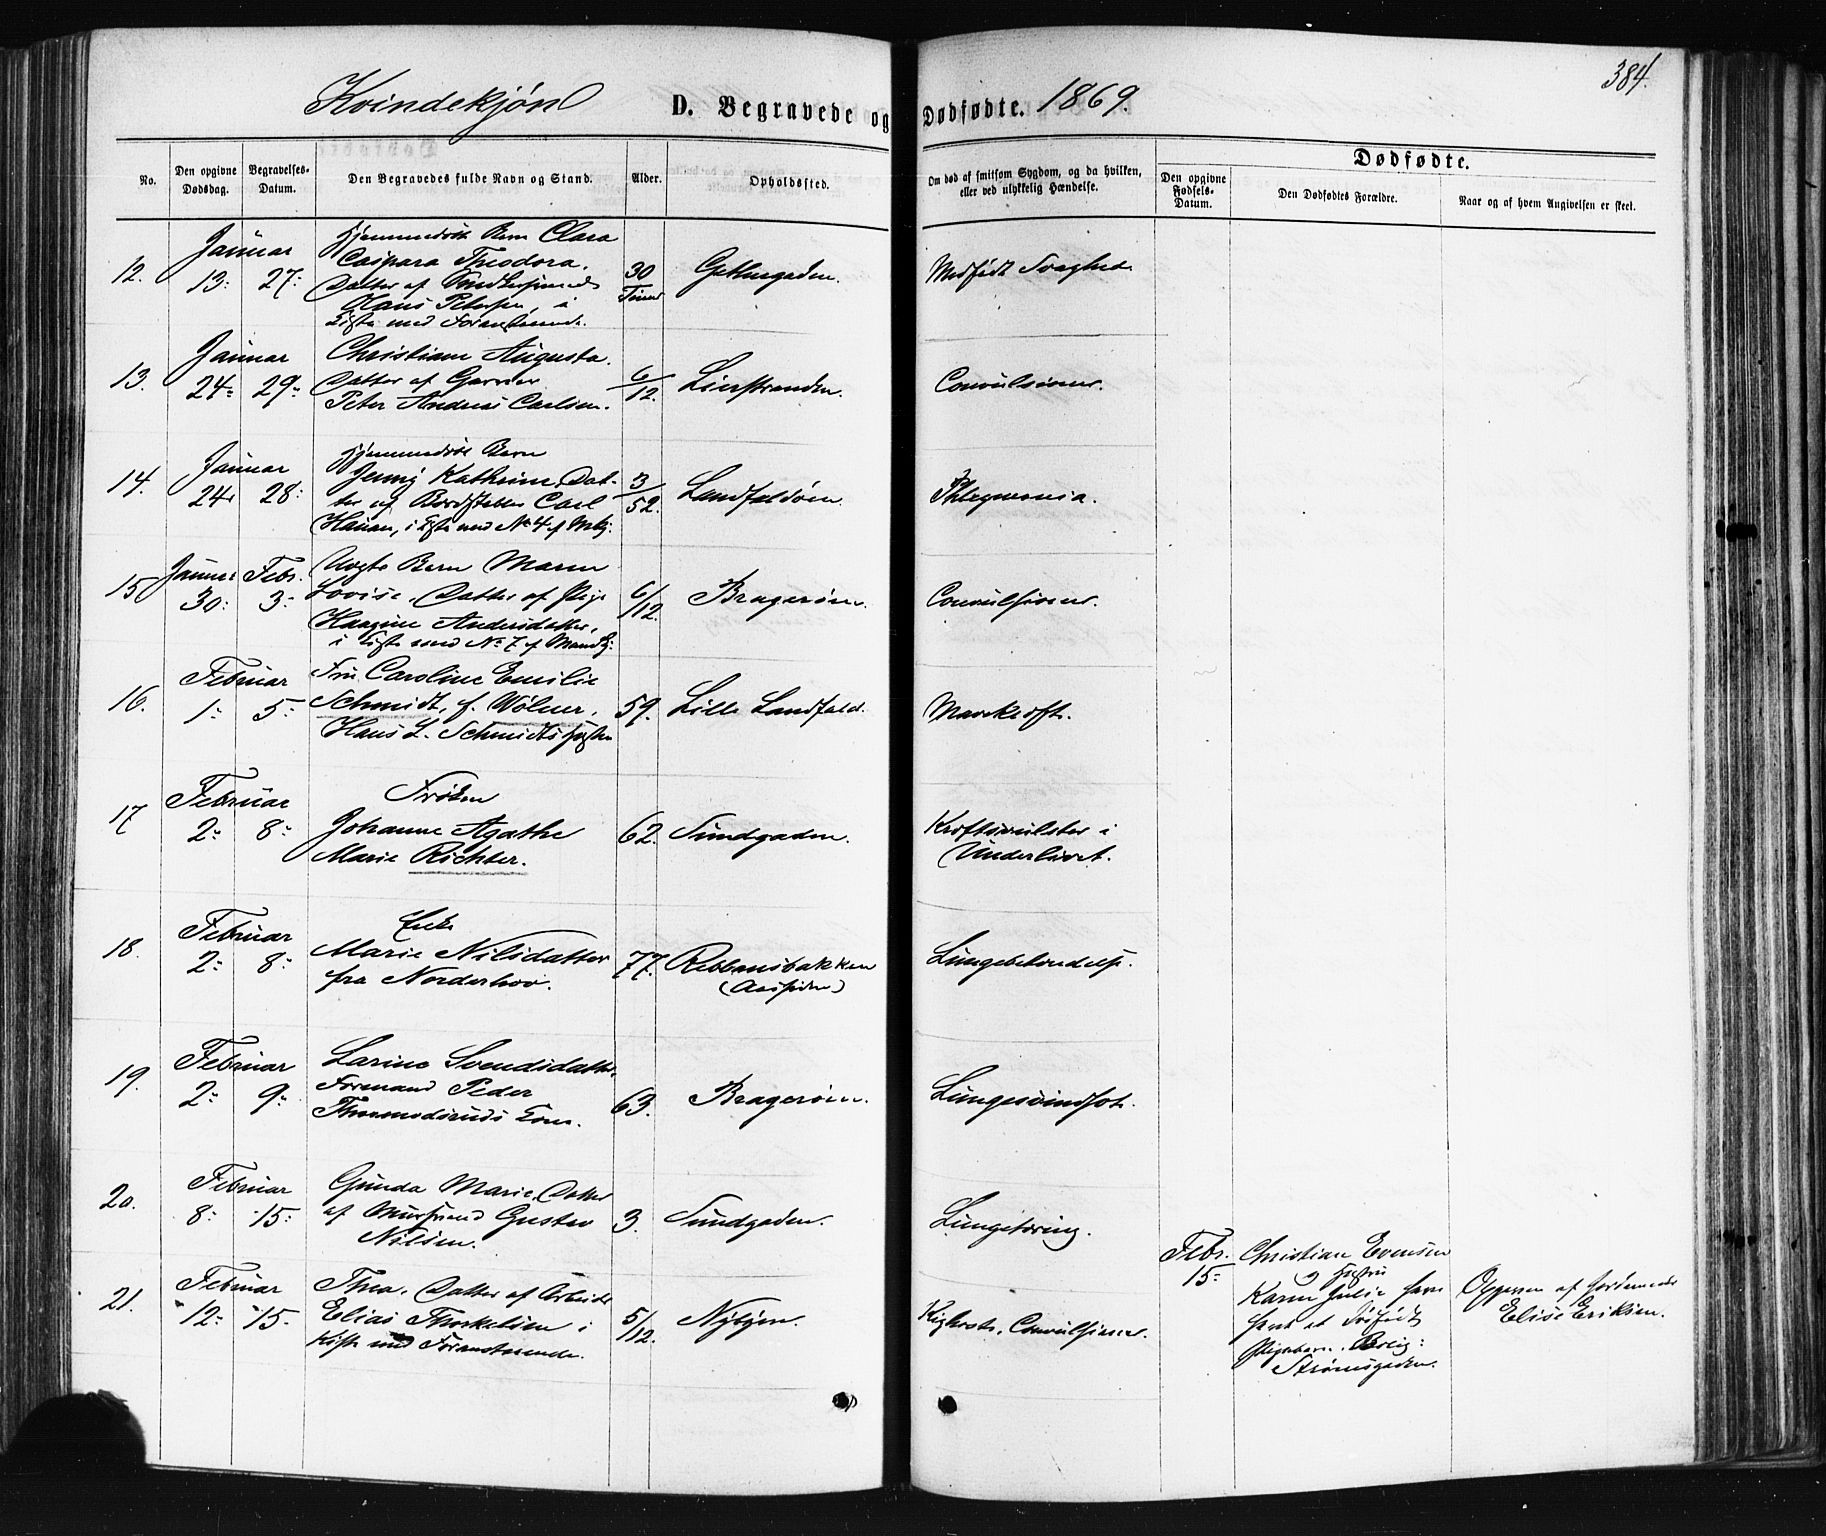 384.
Kvindekjøn D. Begravede og Dødfødte. 1869.
No.
Den opgivne Dødsdag.
Begravelses-Datum.
Den Begravedes fulde Navn og Stand.
Alder.
Opholdssted.
Om død af smitsom Sygdom, og da hvilken, eller ved ulykkelig Hændelse.
Dødfødte.
Den opgivne Fødsels-Datum.
Den Dødfødtes Forældre.
Naar og af hvem Angivelsen er skeet.
12.
Januar
13: 27:
Hjemmedøbt Barn Clara
Caspara Theodora,
Datter af
Hans Petersen, i
Kiste med Foranstaaende.
30
Timer
Medfødt Svaghed.
13.
Januar
24: 29:
Christiane Augusta.
Datter af Garver
Peter Andreas Carlsen.
6/12.
Lierstranden.
Convulsioner.
14.
Januar
24: 28:
Hjemmedøbt Barn
Jenny Kathrine, Dat-
ter af Carl
Hansen, i Kiste med No 4 f Mkj:
3/52.
Landfaldøen.
Phlegmonia.
15
Januar Febr.
30: 3:
Uægte Barn Maren
Lovise, Datter af Pige
Haagine Andersdatter,
i Kiste med No 7 f Mandkj:
6/12.
Bragerøen.
Convulsioner.
16.
Februar
1: 5:
Fru Caroline Emilie
Schmidt, f. Wølner,
Hans L. Schmidts Hustru
59.
Lille Landfald.
Mavekræft.
17
Februar
2: 8:
Frøken
Johanne Agathe
Marie Richter.
62.
Sundgaden.
Kræftsvulster i
Underlivet.
18.
Februar
2: 8:
Enke
Marie Nilsdatter
fra Norderhov.
77.
Rebbansbakken
(Aassiden)
Lungebetændelse.
19.
Februar
2: 9:
Larine Svendsdatter,
Formand Peder
Thormodsruds Kone.
63.
Bragerøen.
Lungesvindsot.
20.
Februar
8: 15:
Gunda Marie, Datter
af Murersvend Gustav
Nilsen.
3.
Sundgaden.
Lungetæring.
21.
Februar
12: 15:
Thea, Datter af Arbeider
Elias Thorkelsen i
Kiste med Foranstaaende.
5/12.
Nybyen.
Kighoste, Convulsioner.
Febr.
15:
Christian Evensen
og Hustru
Karen Julie have
havt et Dødfødt
Pigebarn. Boeig:
Strømsgaden.
Opgiven af Jordemoder
Elise Eriksen.